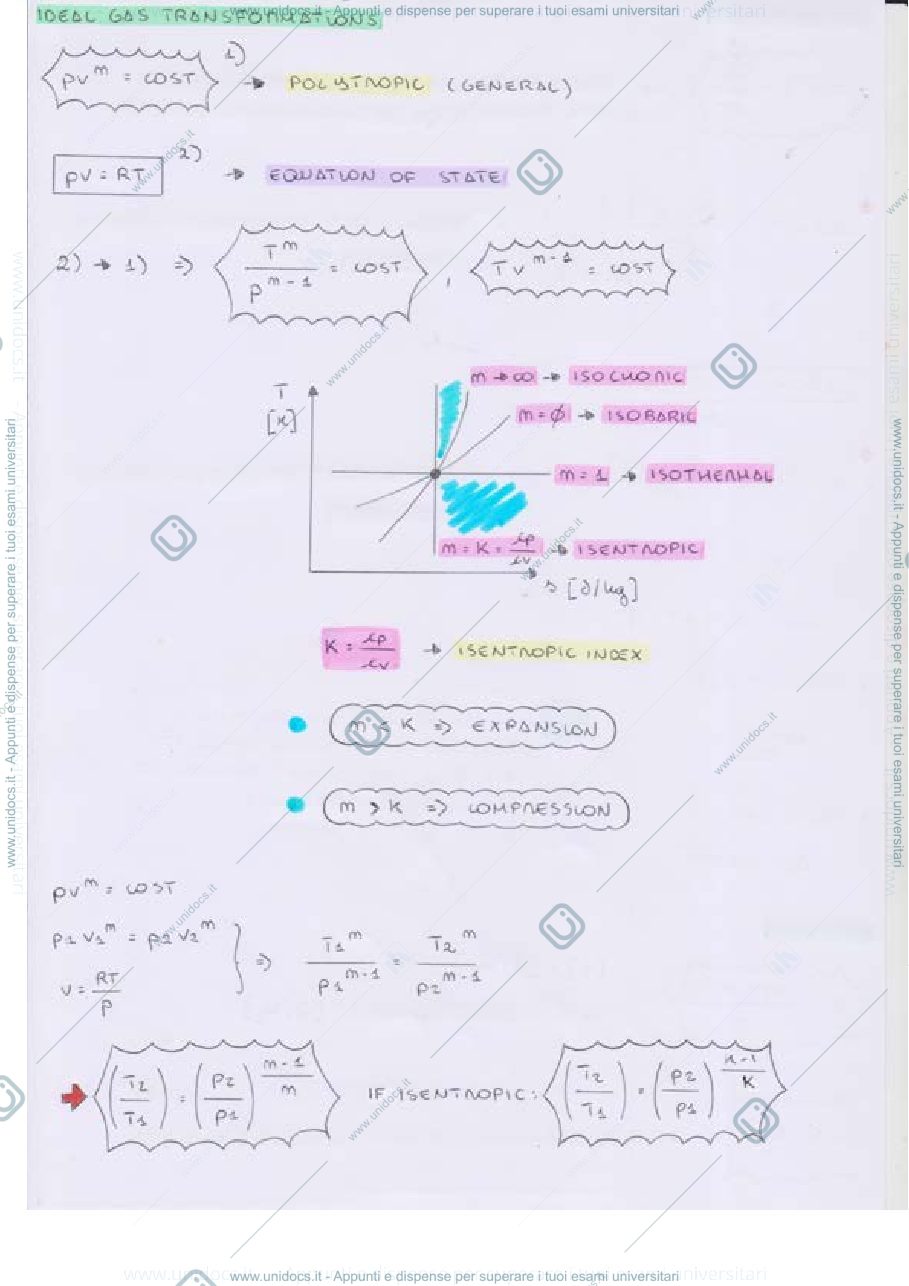 IDEAL GAS TRANSFORMATIONS
www.unidocs.it - Appunti e dispense per superare i tuoi esami universitari
pv^m = COST 1) → POLYTROPIC (GENERAL)
pV = RT 2) → EQUATION OF STATE
2) → 1) ⇒ T^m / p^(m-1) = COST , Tv^(m-1) = COST
T [K]
m → ∞ → ISOCHORIC
m = ∅ → ISOBARIC
m = 1 → ISOTHERMAL
m = K = cp/cv → ISENTROPIC
s [J/kg]
K = cp/cv → ISENTROPIC INDEX
m < K ⇒ EXPANSION
m > K ⇒ COMPRESSION
pv^m = COST
p1 v1^m = p2 v2^m
v = RT/p
} ⇒ T1^m / p1^(m-1) = T2^m / p2^(m-1)
(T2/T1) = (p2/p1)^((m-1)/m) IF ISENTROPIC: (T2/T1) = (p2/p1)^((k-1)/K)
www.unidocs.it - Appunti e dispense per superare i tuoi esami universitari
www.unidocs.it - Appunti e dispense per superare i tuoi esami universitari
www.unidocs.it - Appunti e dispense per superare i tuoi esami universitari